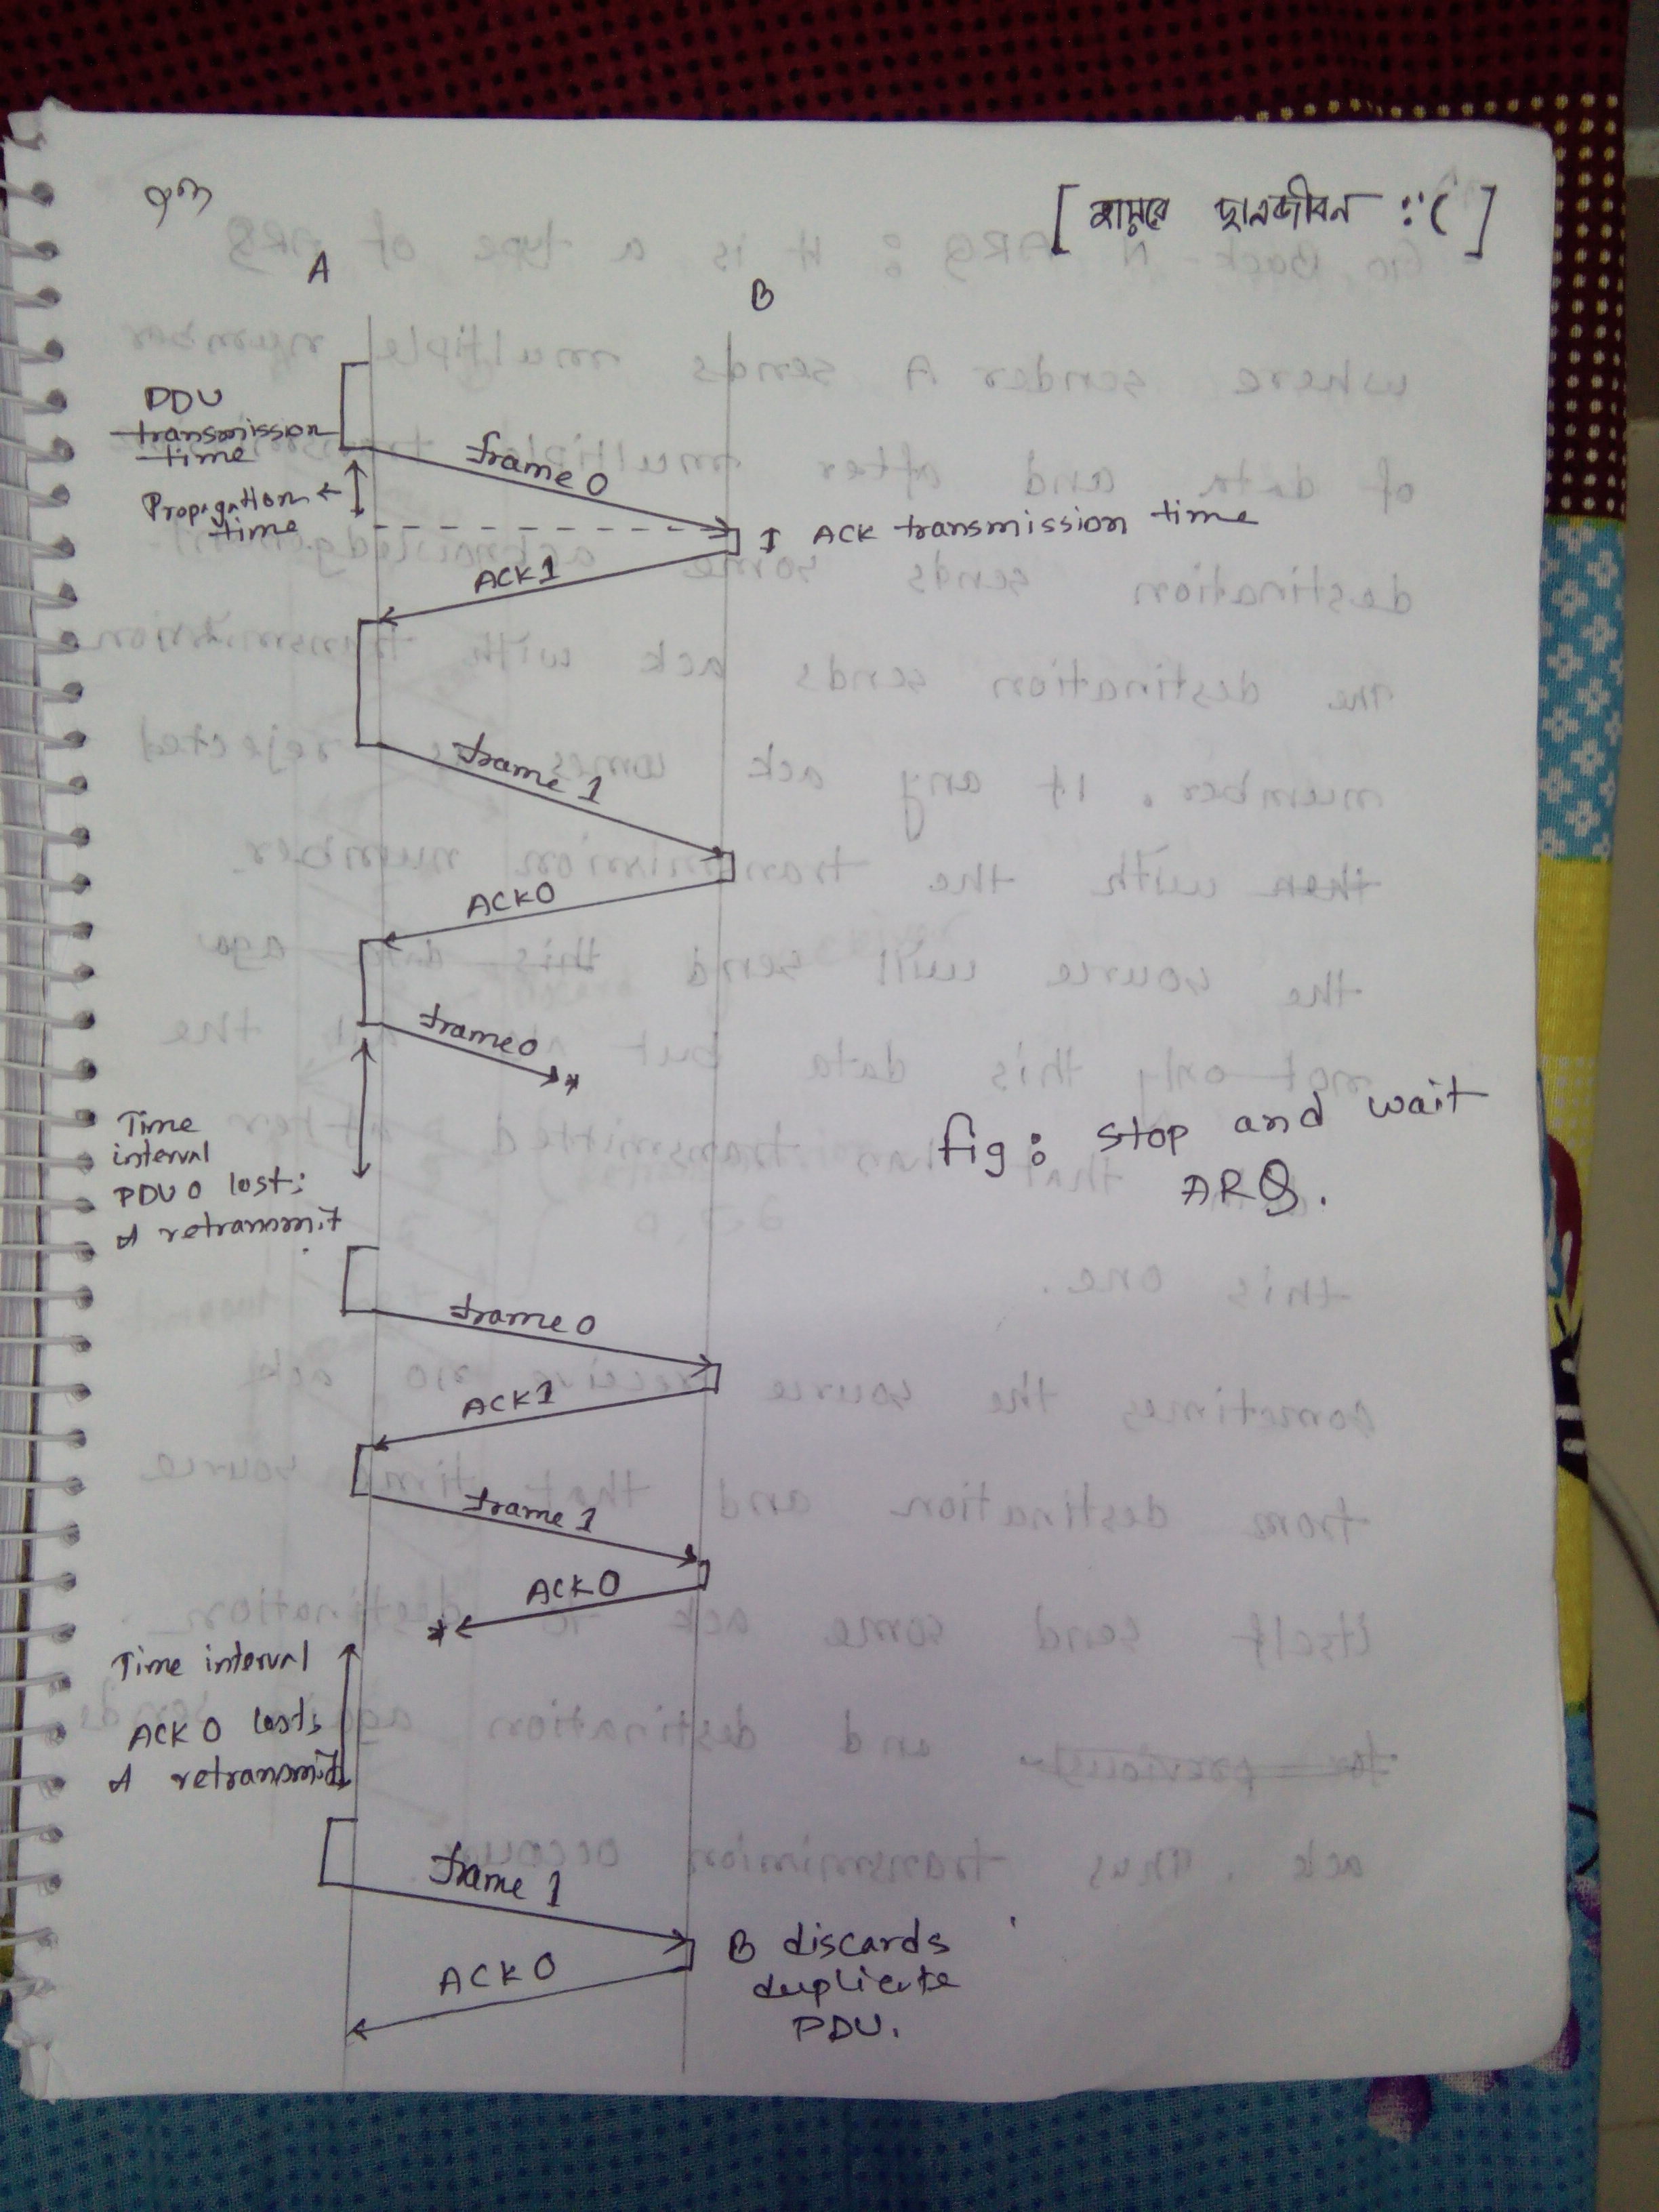 [হায়রে ছাত্রজীবন :'( ]
A
B
PDU
transmission
time
frame 0
Propagation
time
ACK transmission time
ACK 1
frame 1
ACK 0
frame 0
Time
interval
PDU 0 lost;
A retransmit
fig: stop and wait
ARQ.
frame 0
ACK 1
frame 1
ACK 0
Time interval
ACK 0 lost;
A retransmit
frame 1
ACK 0
B discards
duplicate
PDU.